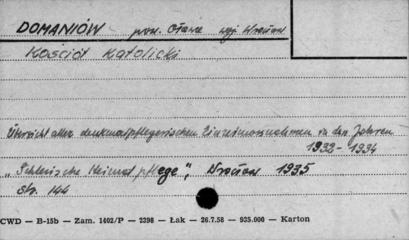 DOMANIÓW pow. Oława woj. Wrocław
Kościół Katolicki
Übersicht aller denkmalpflegerischen in den Jahren
1932 - 1934
"Schlesische Heimatpflege", Wrocław 1935
str. 144
CWD — B-15b — Zam. 1402/P — 2398 — Łak — 26.7.58 — 935.000 — Karton